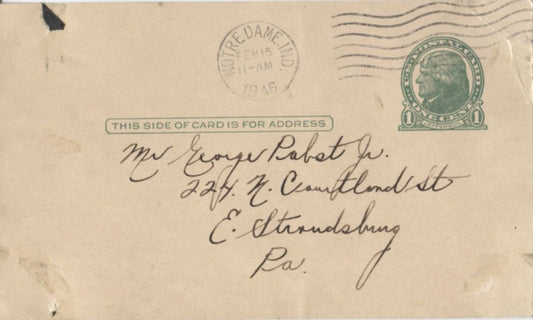 NOTRE DAME, IND.
FEB 15
11-AM
1946
U.S. POSTAL CARD
ONE CENT
1 JEFFERSON 1
THIS SIDE OF CARD IS FOR ADDRESS
Mr George Pabst Jr.
224 N. Courtland St
E. Stroudsburg
Pa.